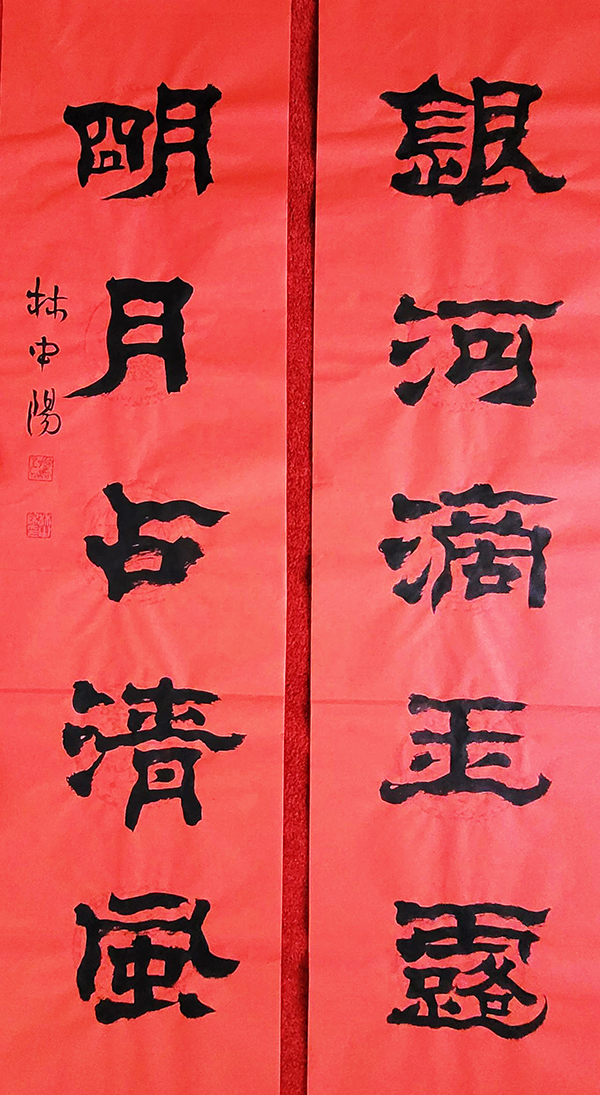 銀河滴玉露
明月占清風
林中陽